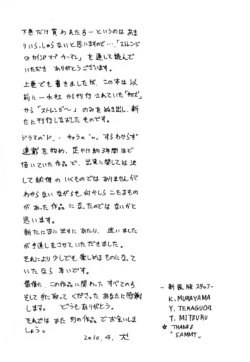 下巻だけ買われた方ーというのはあま
りいらっしゃらないと思いますので…「ストレンジ
を通して読んで
いただき ありがとうございます。
上巻でも書きましたが、この本は以
前に一水社から刊行されていた
から「ストレンジ〜」のみをぬき出し、新
たに刊行しなおしたものです。
ドラマの
連載を始め、足かけ約3年間ほど
描いていた作品で、出来に関しては決
して納得のいくものではありませんが
わからないながらも何かしらこもるもの
があった作品になったのではないかと
思います。
新たに本に出すにあたり、迷いました
が手直しをさせていただきました。
それにより少しでも楽しめるものになって
いたなら幸いです。
最後に、この作品に関わったすべての方
そして手に取ってくださったあなたに感謝
します。どうもありがとう。
それではまた別の作品でお会いしま
しょう。
2010.4.
-新装版スタッフ-
K. MURAYAMA
Y. TERAGUCHI
T. MITSURU
THANKS
SAMMY